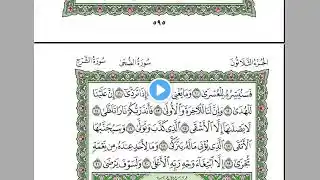 ٥٩٥
الجزء الثلاثون سورة الضحى سورة الشرح
فَسَنُيَسِّرُهُۥ لِلْعُسْرَىٰ وَمَا يُغْنِي إِذَا تَرَدَّىٰٓ إِنَّ عَلَيْنَا
لَلْهُدَىٰ وَإِنَّ لَنَا لَلْـَٔاخِرَةَ وَٱلْأُولَىٰ فَأَنذَرْتُكُمْ نَارًا تَلَظَّىٰ
لَا يَصْلَىٰهَآ إِلَّا ٱلْأَشْقَى ٱلَّذِي كَذَّبَ وَتَوَلَّىٰ وَسَيُجَنَّبُهَا
ٱلْأَتْقَى ٱلَّذِي يُؤْتِي مَالَهُۥ يَتَزَكَّىٰ وَمَا لِأَحَدٍ عِندَهُۥ مِن نِّعْمَةٍ
تُجْزَىٰٓ إِلَّا ٱبْتِغَآءَ وَجْهِ رَبِّهِ ٱلْأَعْلَىٰ وَلَسَوْفَ يَرْضَىٰ